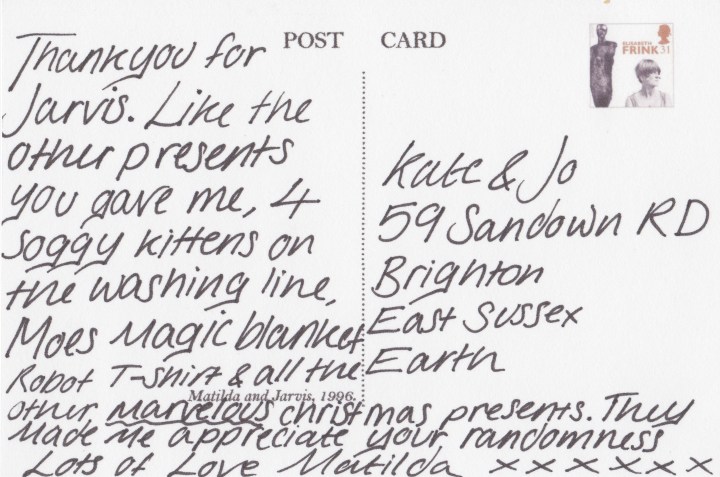 POST CARD
ELISABETH
FRINK 31
Thankyou for
Jarvis. Like the
other presents
you gave me, 4
soggy kittens on
the washing line,
Moes Magic blanket
Robot T-Shirt & all the
other marvelous christmas presents. They
Made Me appreciate your randomness
Lots of Love Matilda x x x x x x
Kate & Jo
59 Sandown RD
Brighton
East Sussex
Earth
Matilda and Jarvis, 1996.